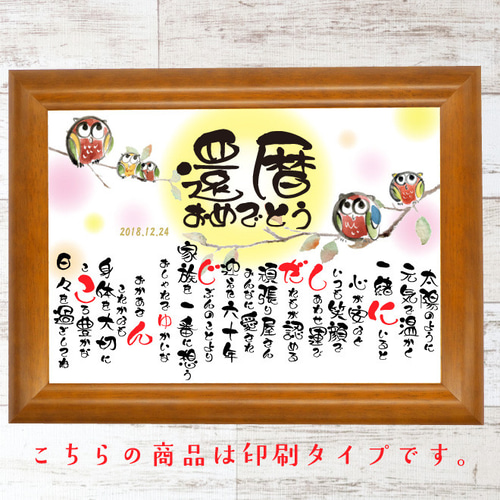 還暦
おめでとう
2018,12,24
太陽のように
元気で温かく
一緒にいると
心が安らぐ
いつも笑顔で
しあわせ運ぶ
だれもが認める
頑張り屋さん
みんなに愛され
迎えた六十年
じぶんのことより
家族を一番に想う
おしゃれでゆかいな
おかあさん
これからも
身体を大切に
こころ豊かな
日々を過ごしてね
こちらの商品は印刷タイプです。